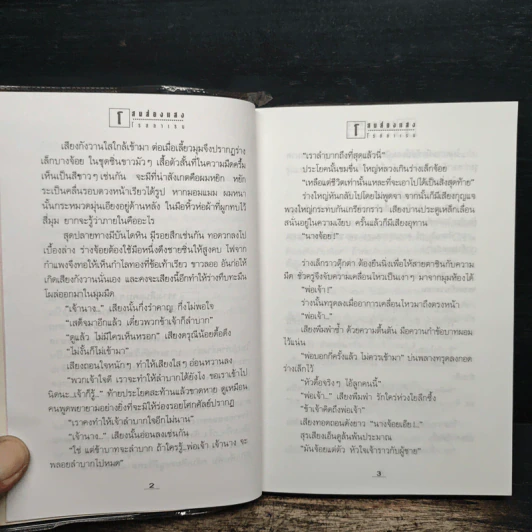 เสียงกังวานใสใกล้เข้ามา ต่อเมื่อเลี้ยวมุมจึงปรากฏร่าง
เล็กบางจ้อย ในชุดซิ่นขาวมัวๆ เสื้อตัวสั้นที่ในความมืดครึ้ม
เห็นเป็นสีขาวๆ เช่นกัน จะมีที่น่าสังเกตคือผมหยิก หยิก
ระเป็นคลื่นรอบดวงหน้าเรียวได้รูป หากมอมแมม ผมหนา
นั้นกระหมวดมุ่นเอียงอยู่ด้านหลัง ในมือหิ้วห่อผ้าที่ผูกทบไว้
สี่มุม ยากจะรู้ว่าภายในคืออะไร
สุดปลายทางมีบันไดหิน มีรอยสึกเช่นกัน ทอดวกลงไป
เบื้องล่าง ร่างจ้อยต้องใช้มือหนึ่งดึงชายซิ่นให้สูงขบ ไฟจาก
กำแพงจึงทอให้เห็นกำไลทองที่ข้อเท้าเรียว ขาวลออ อันก่อให้
เกิดเสียงกังวานนั่นเอง และคงจะเสียงนี้อีกทำให้ร่างที่บทะมึน
โผล่ออกมาในมุมมืด
"เจ้านาง.." เสียงนั้นกึ่งรำคาญ กึ่งไม่พอใจ
"เสด็จมาอีกแล้ว เดี๋ยวพวกข้าเจ้าก็ลำบาก"
"ดูแล้ว ไม่มีใครเห็นหรอก" เสียงดรุณีน้อยดื้อดึง
"ไม่งั้นก็ไม่เข้ามา"
เสียงถอนใจหนักๆ ทำให้เสียงใสๆ อ่อนหวานลง
"พวกเจ้าใจดี เราจะทำให้ลำบากได้ยังไง ขอเราเข้าไป
นิดนะ..เจ้าก็รู้.." ท้ายประโยคสะท้านแล้วขาดหาย ดูเหมือน
คนพูดพยายามอย่างยิ่งที่จะมิให้ร่องรอยโศกศัลย์ปรากฏ
"เราคงทำให้เจ้าลำบากใจอีกไม่นาน"
"เจ้านาง.." เสียงนั้นอ่อนลงเช่นกัน
"ใช่ แต่ข้าบาทจะลำบาก ถ้าใครรู้..พ่อเจ้า เจ้านาง จะ
พลอยลำบากไปหมด"
2
"เราลำบากถึงที่สุดแล้วนี่"
ประโยคนั้นขมขื่น ใหญ่หลวงเกินร่างเล็กจ้อย
"เหลือแต่ชีวิตเท่านั้นแหละที่จะเอาไปได้เป็นสิ่งสุดท้าย"
ร่างใหญ่หันกลับไปโดยไม่พูดจา จากนั้นก็มีเสียงกุญแจ
พวงใหญ่กระทบกันเกรียวกราว เสียงบานประตูเหล็กเลื่อน
สนั่นอยู่ในความเงียบ ครั้นแล้วก็มีเสียงอุทาน
"นางจ้อย!"
ร่างเล็กราวตุ๊กตา ต้องยืนนิ่งเพื่อให้สายตาชินกับความ
มืด ชั่วครู่จึงจับความเคลื่อนไหวเป็นเงาๆ มาจากมุมห้องได้
"พ่อเจ้า!"
ร่างนั้นทรุดลงเมื่ออาการเคลื่อนไหวมาถึงตรงหน้า
"พ่อเจ้า.."
เสียงพึมพำซ้ำ ด้วยความตื้นตัน มือกวานกำข้อบาทผอม
ไว้แน่น
"พ่อบอกกี่ครั้งแล้ว ไม่ควรเข้ามา" บ่นพลางทรุดลงกอด
ร่างเล็กไว้
"หัวดื้อจริงๆ ไอ้ลูกคนนี้"
"พ่อเจ้า.." เสียงพึมพำ รักใคร่ห่วงใยลึกซึ้ง
"ข้าเจ้าคิดถึงพ่อเจ้า"
เสียงทอดถอนดังยาว "นางจ้อยเอ๊ย!.."
สุรเสียงเอ็นดูล้นพ้นประมาณ
"มันจ้อยแต่ตัว หัวใจเจ้าราวกับผู้ชาย"
3